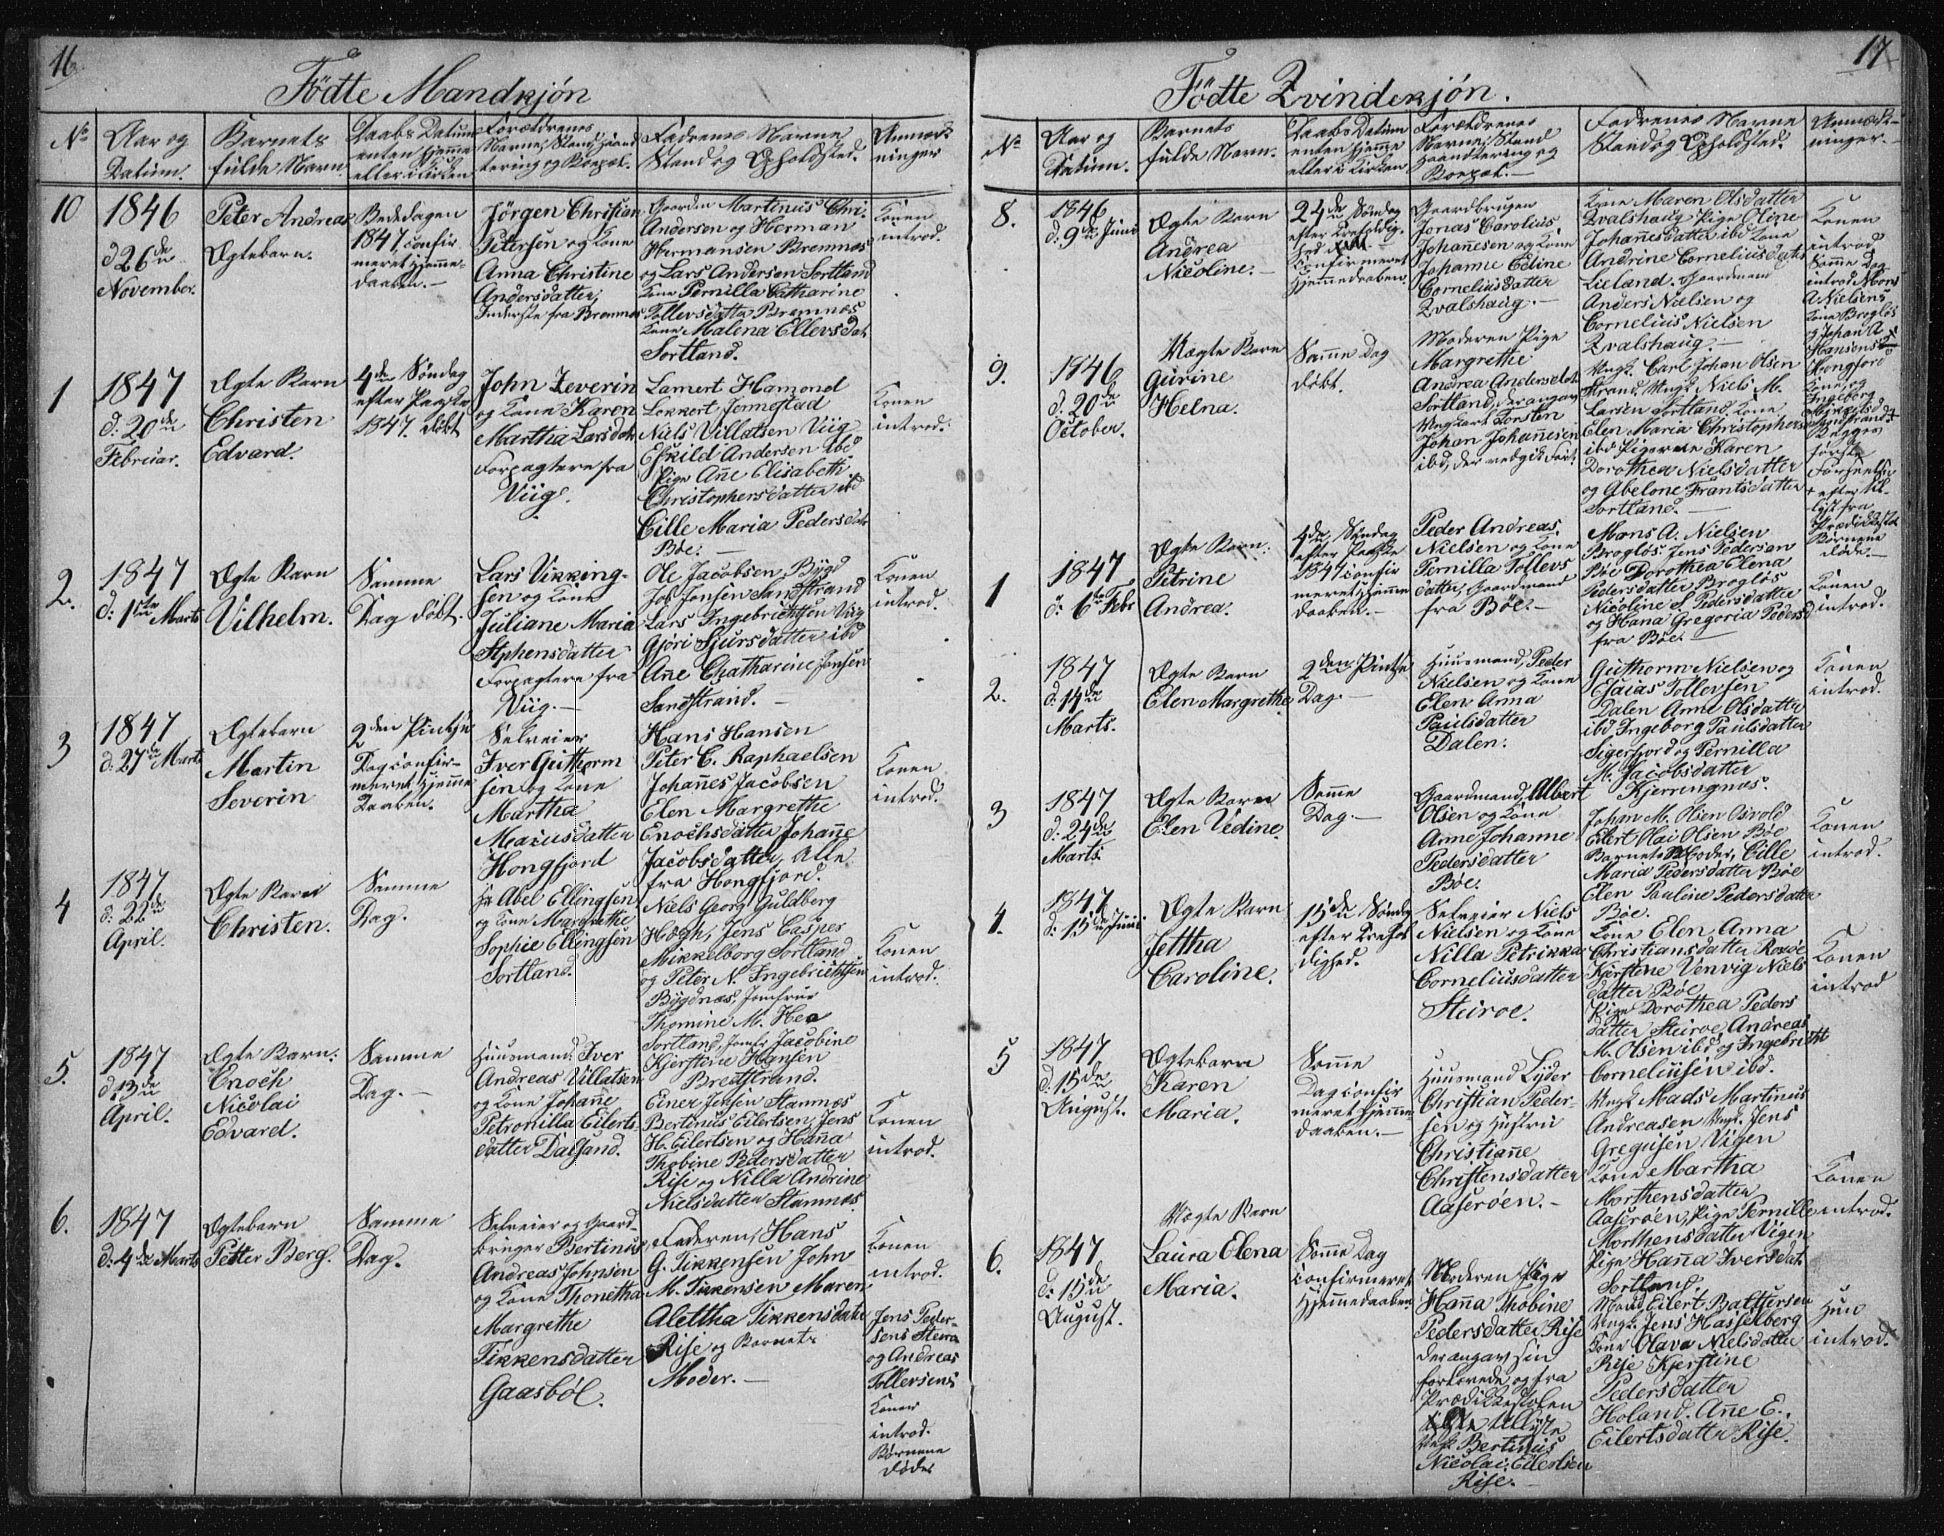 16
Födte Mandkjön
No
Aar og
Datum.
Barnets
fulde Navn
Daabs Datum
enten hjemme
eller i Kirken
Forældrenes
Navne, Stand, Haand-
tering og Bopæl.
Fadrenes Navne
Stand og Opholdsted.
Anmærk-
ninger
10
1846
d 26de
November.
Peter Andreas
Ægtebarn.
Bededagen
1847 confir
meret hjemme-
daaben.—
Jörgen Christian
Petersen og Kone
Anna Christine
Andersdatter,
Inderste fra Bremnes
Gaardm Martinus Chri-
Andersen og Herman
Hermansen Bremnes
og Lars Andersen Sortland
Kone Pernilla Catharine
Tollevsdatter Bremnes
Kone Malena Ellevsdat
Sortland.
Konen
introd.
1
1847
d. 20de
Februar.
Ægte Barn
Christen
Edvard.
4de Söndag
efter Paaske
1847. döbt
John Zeverin
og Kone Karen
Martha Larsdat
Forpagtere fra
Viig.
Lamert Hamond
Lokkert Jennestad
Niels Villatsen Viig
Eskild Andersen ibd
Pige Ane Elisabeth
Christophersdatter ibd
Cille Maria Pedersdatr
Böe.—
Konen
introd.
2.
1847
d. 1ste Marts
Ægte Barn
Vilhelm.
Samme
Dag döbt.
Lars Vikking-
sen og Kone
Juliane Maria
Stphensdatter
Forpagtere fra
Viig.—
Ole Jacobsen Bygd
Job Jonsen Sandstrand
Lars Ingebrichtsen Viig
Gjöri Sjursdatter ibd
Ane Chatharine Jensen
Sandstrand.—
Konen
introd.
3
1847
d. 27de Marts
Ægtebarn
Martin
Severin
2den Pintse
Dag confir-
meret hjemme
Daaben.
Selveier
Iver Guthorm
sen og Kone
Martha
Marcusdatter
Hongfjord
Hans Hansen
Peter C. Raphaelsen
Johannes Jacobsen
Elen Margrethe
Enochsdatter Johanne
Jacobsdatter, Alle
fra Hongfjord.
Konen
introd.
4
1847
d. 22de
April.
Ægte Barn
Christen.
Samme
Dag.
Hr Abel Ellingsen
og Kone Margrethe
Sophie Ellingsen
Sortland
Niels Georg Guldberg
Høgh, Jens Caspes
Mikkelborg Sortland
og Peter N. Ingebrichtsen
Bygdnes, Jomfrue
Thomine M. Hea
Sortland, Jomfr Jacobine
Kjerstine Hansen
Bredstrand.
Konen
introd.
5.
1847
d. 13de
April.
Ægte Barn.
Enoch
Nicolai
Edvard.
Samme
Dag.—
Huusmand Iver
Andreas Villatsen
og Kone Johanne
Petronilla Eilerts
datter Dalsand.
Einer Jensen Stamnes
Bertinus Eilertsen, Jens
H. Eilertsen og Hana
Thobine Pedersdatter
Rise og Nilla Andrine
Nielsdatter Stamnes
Konen
introd.
6.
1847
d. 4de Marts
Ægtebarn
Petter Berg.
Samme
Dag.
Selveier og Gaard-
bruger Bertinus
Andreas Johnsen
og Kone Thonetha
Margrethe
Tikkensdatter
Gaasböl.
Faderen, Hans
G. Tikkensen John
M. Tikkensen Maren
Alettha Tikkensdatr
Rise og Barnets
Moder.—
Konen
introd.
Jens Peder-
sens Steiroe
og Andreas
Tollersens
Koner
introd.
Börnene
döde
17
Födte Qvindekjön.
No
Aar og
Datum.
Barnets
fulde Navn.
Daabs Datum
enten hjemme
eller i Kirken
Forældrenes
Navne, Stand
Haandtering og
Bopæl.—
Fadrenes Navne
Stand og Opholdsted.
Anmærk-
ninger.
8.
1846
d. 9de Juni
Ægte Barn
Andrea
Nicoline.—
24de Söndag
efter Trefoldig-
hed
confirmeret
hjemmedaaben.
Gaardbruger
Jonas Carolius
Johannesen og Kone
Johanne Edine
Corneliusdatter
Kvalshaug.—
Kone Maren Olsdatter
Kvalshaug Pige Oline
Johannesdatter ibd Kone
Andrine Corneliusdatr
Lieland. Gaardmand
Anders Nielsen og
Cornelius Nielsen
Kvalshaug.—
Konen
introd
Samme Dag
introd Mons
A. Nielsens
Kone Brogløs
og Johan A
Hansens
Hongfiord
Kone, og
Ingeborg
9.
1846
d. 20de
October.
Uægte Barn
Gurine
Helna.
Samme Dag
döbt.
Moderen Pige
Margrethe
Andrea Andersdatr
Sortland, der angav
Ungkarl Torsten
Johan Johannesen
ibd, der vedgik det.
Ungk. Carl Johan Olsen
Strand. Ungk. Niels M.
Larsen Sortland. Kone
Elen Maria Christophers
ibd Pigerne Karen
Dorothea Nielsdatter
og Abelone Frantsdatter
Sortland.—
Begges
förste
Forseelse
efter Til-
lyst fra
Prædikestol
Börnene
döde.—
1
1847
d. 6te Febr
Ægte Barn.
Petrine
Andrea.
4de Söndag
efter Paaske
1847 confir
meret hjemme
daaben.—
Peder Andreas
Nielsen og Kone
Pernilla Tollevs
datter, Gaardmand
fra Böe.—
Mons A. Nielsen
Brogløs. Jens Pedersen
Böe Dorothea Elena
Pedersdatter Brogløs
Nicoline S Pedersdatter
og Hana Gregoria Pedersd
fra Böe.—
Konen
introd.
2.
1847
d. 14de
Marts.
Ægte Barn
Elen Margrethe
2den Pintse
Dag.—
Huusmand, Peder
Nielsen og Kone
Elen Anna
Paulsdatter
Dalen.
Guthorm Nielsen og
Esaias Tollevsen
Dalen Anne Olsdatter
ibd Ingeborg Paulsdatter
Sigerfjord og Pernilla
M. Jacobsdatter
Kjerringnes.
Konen
introd.
3
1847
d. 24de
Marts.
Ægte Barn
Elen Vedine.
Samme
Dag.—
Gaardmand, Albert
Olsen og Kone
Anne Johanne
Pedersdatter
Böe.
Johan M. Olsen Osvold
Eilert Olai Olsen Böe
Barnets Moder, Cille
Maria Pedersdatter Böe
Elen Pauline Pedersdatter
Böe.
Konen
introd.
4.
1847
d. 15de Juni
Ægte Barn
Jettha
Caroline.
15de Söndag
efter Trefol
dighed.
Selveier Niels
Nielsen og Kone
Nilla Petrikka
Corneliusdatter
Steiroe.
Kone Elen Anna
Christiansdatter Roxöe
Kjerstine Venvig Niels
datter Böe
Pige Dorothea Peders
datter Steiroe, Andreas
M. Olsen ibd og Ingebricht
Corneliusen ibd.
Konen
introd
5
1847
d. 15de
August.
Ægtebarn
Karen
Maria.
Samme
Dag confir
meret hjemme
daaben.—
Huusmand Lyder
Christian Peder-
sen og Hustru
Christianne
Christensdatter
Aaseröen.—
Ungk. Mads Martinus
Andreasen Ungk. Jens
Gregusen Vigen
Kone Martha
Morthensdatter
Aaseröen, Pige Pernille
Morthensdatter Vigen
Pige Hanna Iversdatr
Sortland.
Konen
introd.
6.
1847
d. 15de
August.
Uægte Barn
Laura Elena
Maria.
Samme Dag
confirmeret
hjemmedaaben
Moderen Pige
Hanna Thobine
Pedersdatter Rise
der angav sin
forlovede og fra
Prædikestolen
tillyste
Ungk Bertinus
Nicolai Eilertsen
Rise.—
Mand Eilert Battersen
Ungk. Jens Hasselberg
Kone Olava Nielsdatter
Rise Kjerstine
Pedersdatter
Holand. Ane E.
Eilertsdatter Rise.
Hun
introd.